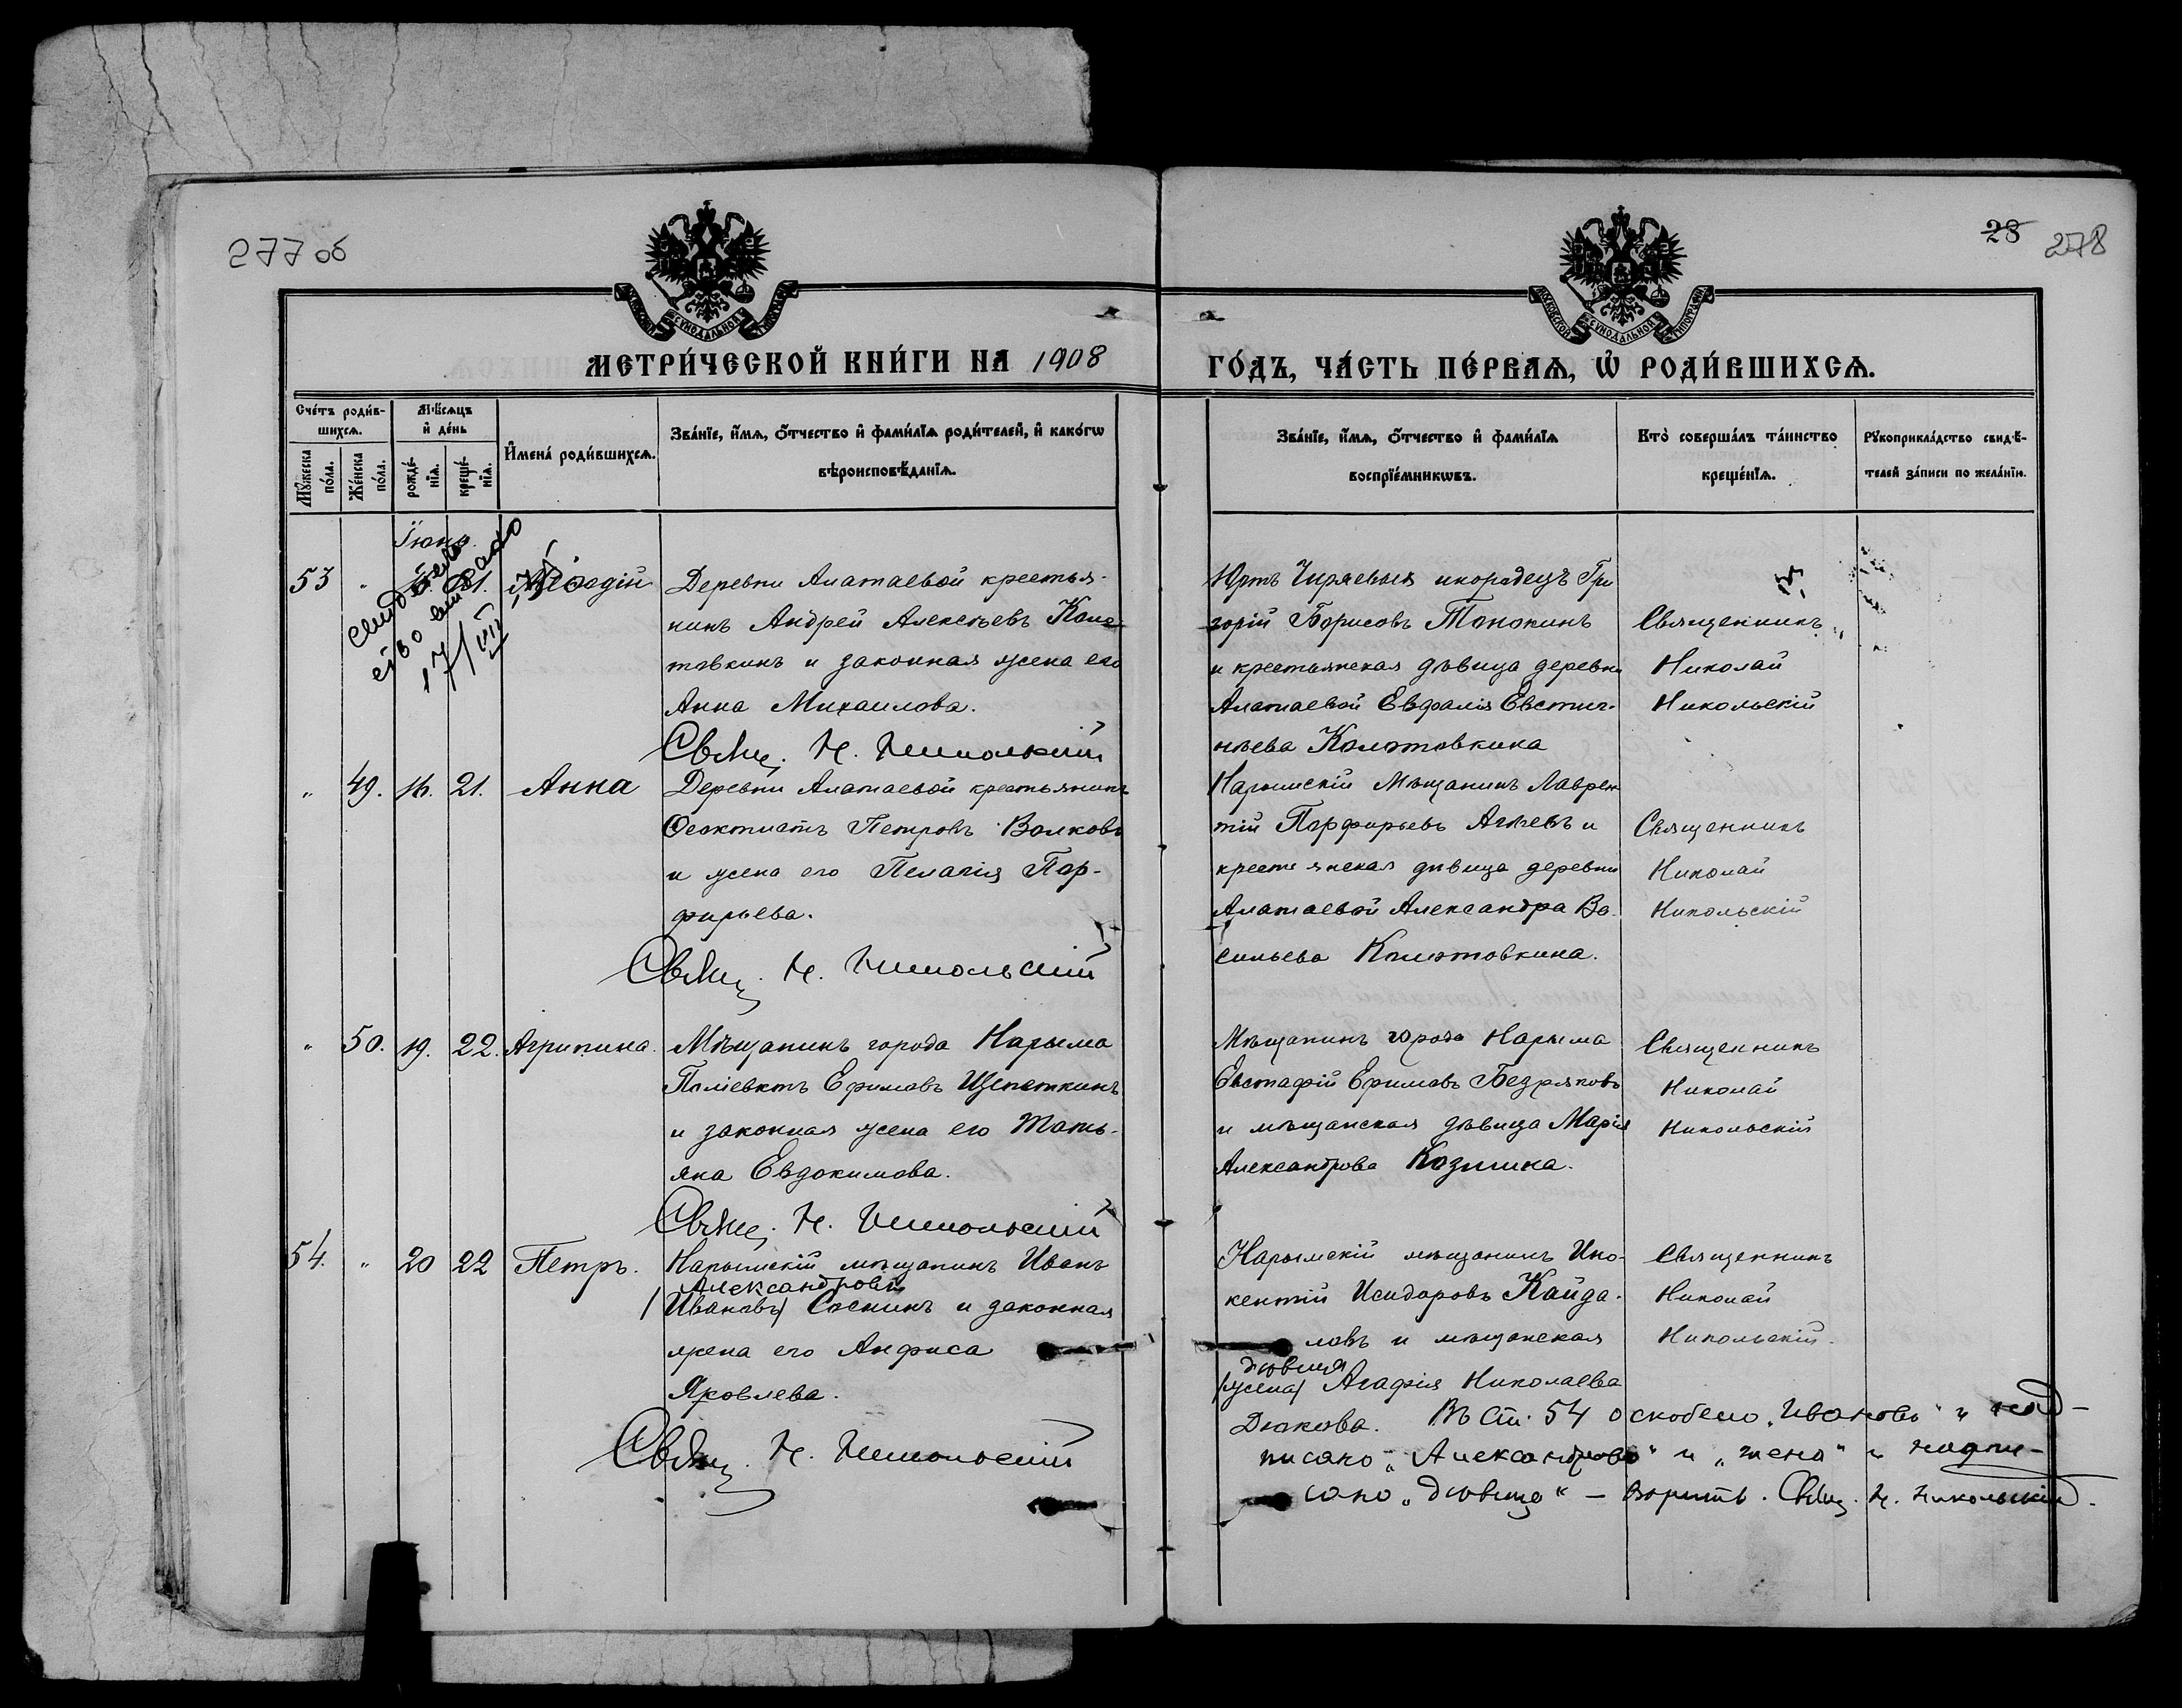 277 об
28 278
МОСКОВСКОЙ СѴНОДАЛЬНОЙ ТИПОГРАФІИ
МОСКОВСКОЙ СѴНОДАЛЬНОЙ ТИПОГРАФІИ
МЕТРИ́ЧЕСКОЙ КНИ́ГИ НА 1908
ГО́ДЪ, ЧА́СТЬ ПЕ́РВАѦ, Ѡ҆ РОДИ́ВШИХСѦ.
Сче́тъ роди́в-
шихсѧ.
Мꙋ́жеска по́ла.
Же́нска по́ла.
Мѣ́сѧцъ
и҆ де́нь
рожде́-
нїѧ.
креще́-
нїѧ.
И҆мена̀ роди́вшихсѧ.
Зва́нїе, и҆́мѧ, ѻ҆́тчество и҆ фами́лїѧ роди́телей, и҆ како́гѡ
вѣроисповѣ́данїѧ.
Зва́нїе, и҆́мѧ, ѻ҆́тчество и҆ фами́лїѧ
воспрїе́мникѡвъ.
Кто̀ соверша́лъ та́инство
креще́нїѧ.
Рꙋкоприкла́дство свидѣ́-
телей за́писи по жела́нїю.
Іюнь.
53 " 21. Меѳодій
17/VIII
Деревни Алатаевой крестья-
нинъ Андрей Алексѣевъ Коло-
товкинъ и законная жена его
Анна Михаилова.
Свящ. Н. Никольскій
Юртъ Чиряевыхъ инородецъ Гри
горій Борисовъ Тонопинъ
и крестьянская дѣвица деревни
Алатаевой Евфалія Евстиг-
нѣева Колотовкина
Священникъ
Николай
Никольскій
" 49. 16. 21. Анна
Деревни Алатаевой крестьянинъ
Ѳеоктистъ Петровъ Волковъ
и жена его Пелагія Пор-
фирьева.
Свящ. Н. Никольскій
Нарымскій Мѣщанинъ Лаврен
тій Порфирьевъ Агѣевъ и
крестьянская дѣвица деревни
Алатаевой Александра Ва-
сильева Колотовкина.
Священникъ
Николай
Никольскій
" 50. 19. 22. Агрипина.
Мѣщанинъ города Нарыма
Поліевктъ Ефимовъ Щепеткинъ
и законная жена его Тать-
яна Евдокимова.
Свящ. Н. Никольскій
Мѣщанинъ города Нарыма
Евстафій Ефимовъ Бедряковъ
и мѣщанская дѣвица Марія
Александрова Козмина.
Священникъ
Николай
Никольскій
54. " 20 22 Петръ.
Нарымскій мѣщанинъ Иванъ
Александровъ
(Ивановъ) Соснинъ и законная
жена его Анфиса
Яковлева.
Свящ. Н. Никольскій
Нарымскій мѣщанинъ Ино-
кентій Исидоровъ Кайда-
ловъ и мѣщанская
дѣвица
(жена) Агафія Николаева
Дюкова.
Священникъ
Николай
Никольскій.
Въ ст. 54 оскоблено „Ивановъ" и над-
писано „Александровъ" и „жена" и надпи-
сано „дѣвица" – вѣрить. Свящ. Н. Никольскій.